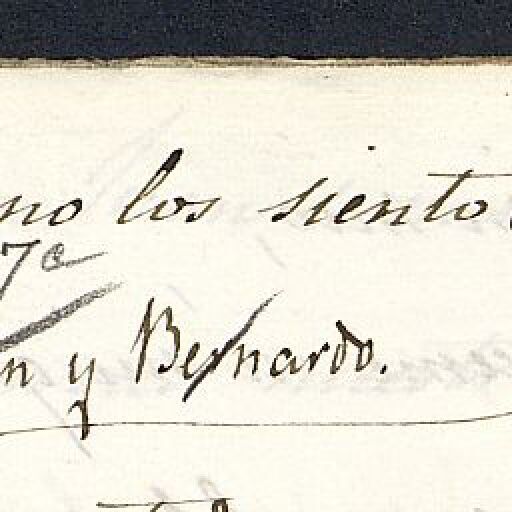 no los siento
7ª
n y Bernardo.